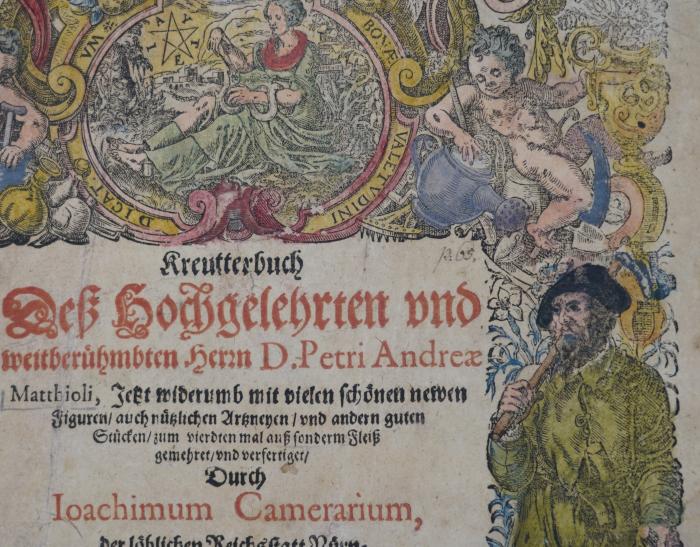 VM BONÆ VALETVDINI DICAT
Kreutterbuch
Deß Hochgelehrten vnd
weitberühmbten Herrn D. Petri Andreæ
Matthioli, Jetzt widerumb mit vielen schönen newen
Figuren/ auch nützlichen Artzneyen/ vnd andern guten
Stücken/ zum vierdten mal auß sonderm Fleiß
gemehret/ vnd verfertiget/
Durch
Ioachimum Camerarium,
der löblichen Reichsstatt Nürn-